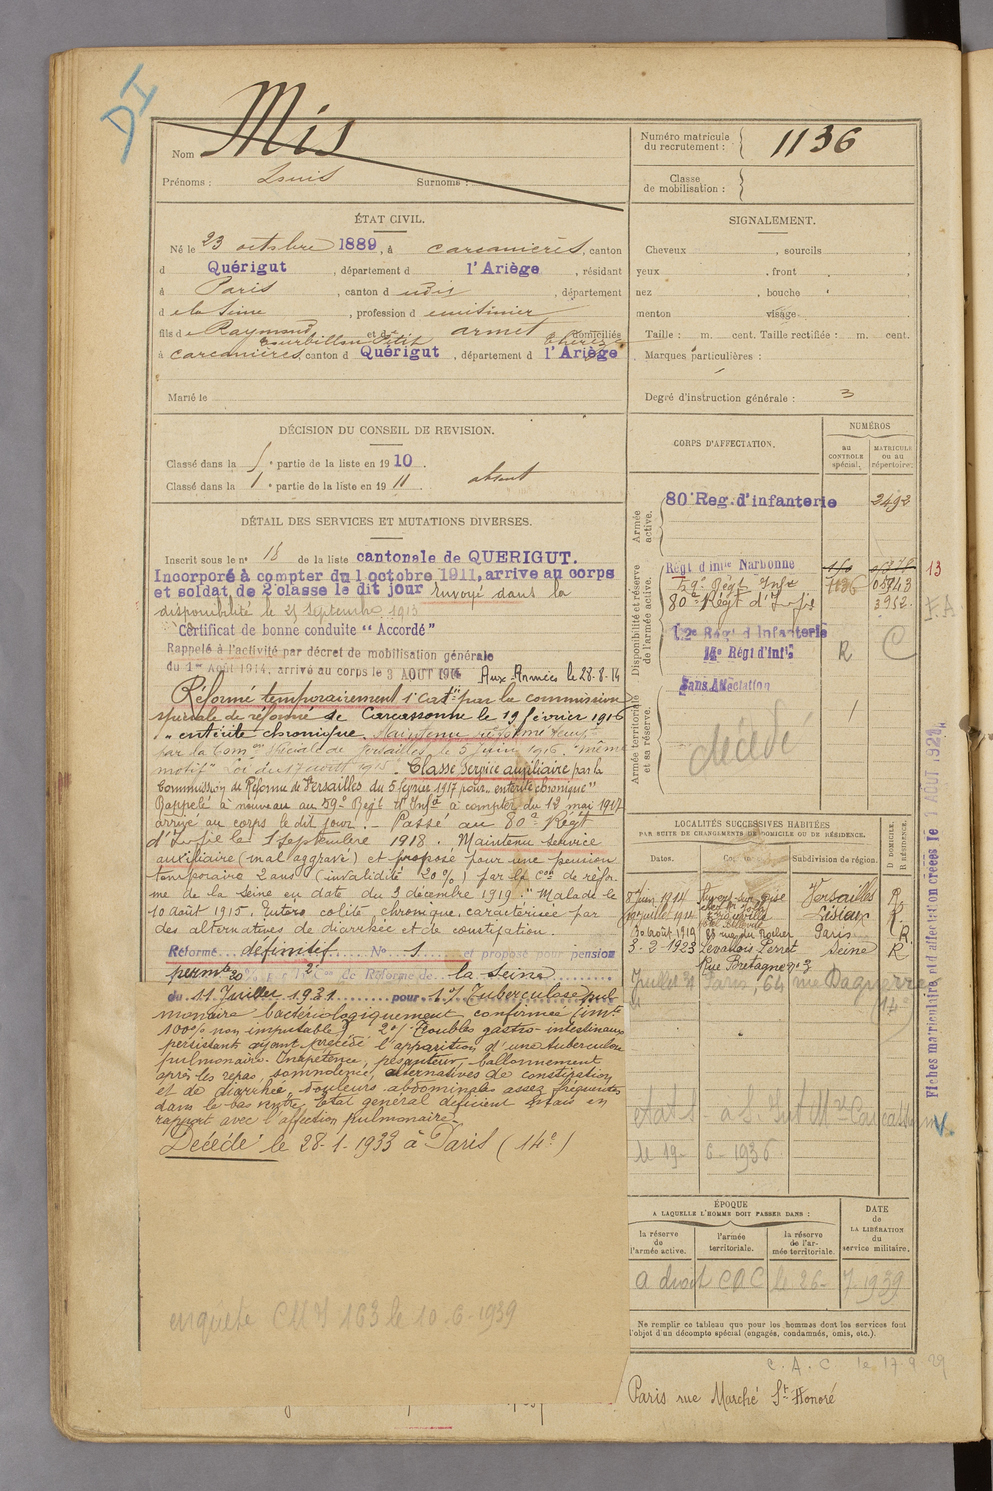 DI
Nom Mis
Prénoms : Louis Surnoms :
Numéro matricule du recrutement : 1136
Classe de mobilisation :
ÉTAT CIVIL.
Né le 23 octobre 1889, à Carcanières, canton
d Quérigut, département d l'Ariège, résidant
à Paris, canton d udis, département
d e la Seine, profession d
fils de Raymond et de armet Thérèze domiciliés
à carcanières canton d Quérigut, département d l'Ariège
Marié le
SIGNALEMENT.
Cheveux , sourcils ,
yeux , front ,
nez , bouche ,
menton visage
Taille : m. cent. Taille rectifiée : m. cent.
Marques particulières :
Degré d'instruction générale : 3
DÉCISION DU CONSEIL DE REVISION.
Classé dans la partie de la liste en 1910.
Classé dans la 1e partie de la liste en 1911. absent
DÉTAIL DES SERVICES ET MUTATIONS DIVERSES.
Inscrit sous le no 18 de la liste cantonale de QUERIGUT.
Incorporé à compter du 1 octobre 1911, arrive au corps
et soldat de 2e classe le dit jour Envoyé dans la
disponibilité le 25 Septembre 1913
Certificat de bonne conduite "Accordé"
Rappelé à l'activité par décret de mobilisation générale
du 1er Août 1914, arrivé au corps le 3 AOUT 1914 Aux Armées le 28-8-14
Réformé temporairement 1e Cat" par la commission
spéciale de réforme de Carcassonne le 19 février 1916
"entérite chronique. Maintenu réformé temp.
par la Com. on spéciale de Versailles, le 5 juin 1916. "même
motif" Loi du 17 août 1915. Classé service auxiliaire par la
Commission de Réforme de Versailles du 5 février 1917 pour "entérite chronique"
Rappelé à nouveau au 59e Regt d'Infie à compter du 12 mai 1917
arrivé au corps le dit jour. Passé au 80e Regt
d'Infie le 1 Septembre 1918. Maintenu service
auxiliaire (mal aggravé) et proposé pour une pension
temporaire 2 ans (invalidité 20%) par la Con de réfor-
me de la Seine en date du 3 décembre 1919 : "Malade le
10 août 1915. Entéro colite chronique caractérisée par
des alternatives de diarrhée et de constipation.
Réformé définitif No 1 et proposé pour pension
permte 20 % par la 2e Con de Réforme de la Seine
du 11 Juillet 1931 pour 1°/ Tuberculose pul-
monaire bactériologiquement confirmée (imte
100% non imputable) 2°/ Troubles gastro-intestinaux
persistants ayant précédé l'apparition d'une tuberculose
pulmonaire. Inapétence, pesanteur, ballonnement
après les repas, somnolence, alternatives de constipation
et de diarrhée, douleurs abdominales assez fréquentes
dans le bas ventre. Etat général déficient étant en
rapport avec l'affection pulmonaire.
Décédé le 28-1-1933 à Paris (14e)
enquête CMI 163 le 10-6-1939
CORPS D'AFFECTATION.
NUMÉROS
au CONTROLE spécial.
MATRICULE ou au répertoire.
Armée active.
80e Reg. d'infanterie 2492
Disponibilité et réserve de l'armée active.
Régt d'infie Narbonne 13
59e Régt Infie 7186
80e Régt d'Infie 3952
Rég't d'Infanterie
Régt d'Infie R C
F.A
Armée territoriale et sa réserve.
Sans Affectation 1
décédé
LOCALITÉS SUCCESSIVES HABITÉES
PAR SUITE DE CHANGEMENTS DE DOMICILE OU DE RÉSIDENCE.
Dates. Subdivision de région. D DOMICILE. R RÉSIDENCE.
8 Juin 1914 Auvers-sur-Oise Versailles R
juillet 1914 Trouville Lisieux R
30 août 1919 rue du Rocher Paris R
3-2-1923 Levallois Perret Seine R
Rue Bretagne no 3
Juillet 31 Paris, 64 rue Daguerre
(14e)
le 19- 6-1936
Fiches matriculaire et d'affectation créées le 1 AOUT 1929
ÉPOQUE
A LAQUELLE L'HOMME DOIT PASSER DANS :
la réserve de l'armée active.
l'armée territoriale.
la réserve de l'armée territoriale.
DATE de LA LIBÉRATION du service militaire.
a droit CAC le 26- 7-1939
Ne remplir ce tableau que pour les hommes dont les services font
l'objet d'un décompte spécial (engagés, condamnés, omis, etc.).
C.A.C. le 17-9-29
Paris rue Marché St Honoré